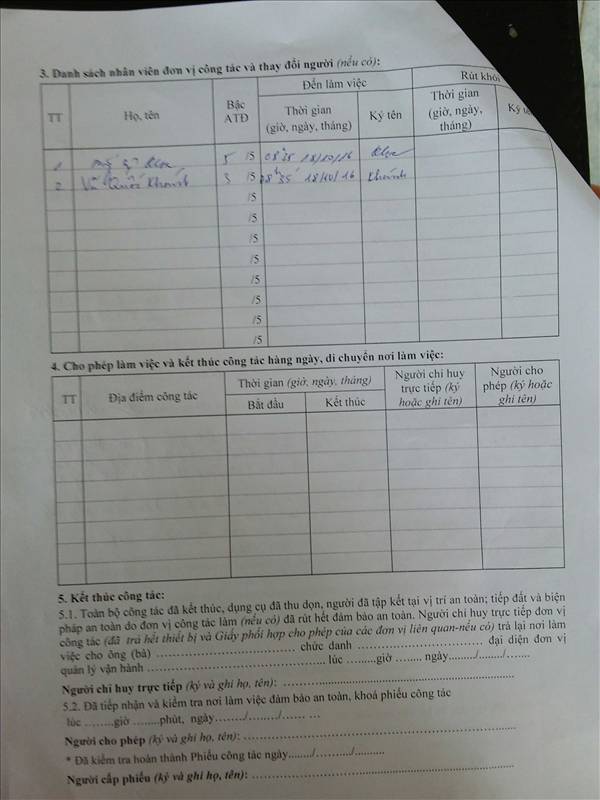 3. Danh sách nhân viên đơn vị công tác và thay đổi người (nếu có):
TT Họ, tên Bậc ATĐ Đến làm việc Rút khỏi
Thời gian (giờ, ngày, tháng) Ký tên Thời gian (giờ, ngày, tháng) Ký
1 Khoa 5 /5 08h35 18/10/16 Khoa
2 Vũ Quốc Khánh 3 /5 08h35 18/10/16 Khánh
/5
/5
/5
/5
/5
/5
/5
/5
4. Cho phép làm việc và kết thúc công tác hàng ngày, di chuyển nơi làm việc:
TT Địa điểm công tác Thời gian (giờ, ngày, tháng) Người chỉ huy trực tiếp (ký hoặc ghi tên) Người cho phép (ký hoặc ghi tên)
Bắt đầu Kết thúc
5. Kết thúc công tác:
5.1. Toàn bộ công tác đã kết thúc, dụng cụ đã thu dọn, người đã tập kết tại vị trí an toàn; tiếp đất và biện
pháp an toàn do đơn vị công tác làm (nếu có) đã rút hết đảm bảo an toàn. Người chỉ huy trực tiếp đơn vị
công tác (đã trả hết thiết bị và Giấy phối hợp cho phép của các đơn vị liên quan-nếu có) trả lại nơi làm
việc cho ông (bà) .......... chức danh .......... đại diện đơn vị
quản lý vận hành .......... lúc ........giờ ........ ngày......../......../........
Người chỉ huy trực tiếp (ký và ghi họ, tên): ..........
5.2. Đã tiếp nhận và kiểm tra nơi làm việc đảm bảo an toàn, khoá phiếu công tác
lúc ........giờ ........phút, ngày......../......../........
Người cho phép (ký và ghi họ, tên): ..........
* Đã kiểm tra hoàn thành Phiếu công tác ngày......../......../........
Người cấp phiếu (ký và ghi họ, tên): ..........